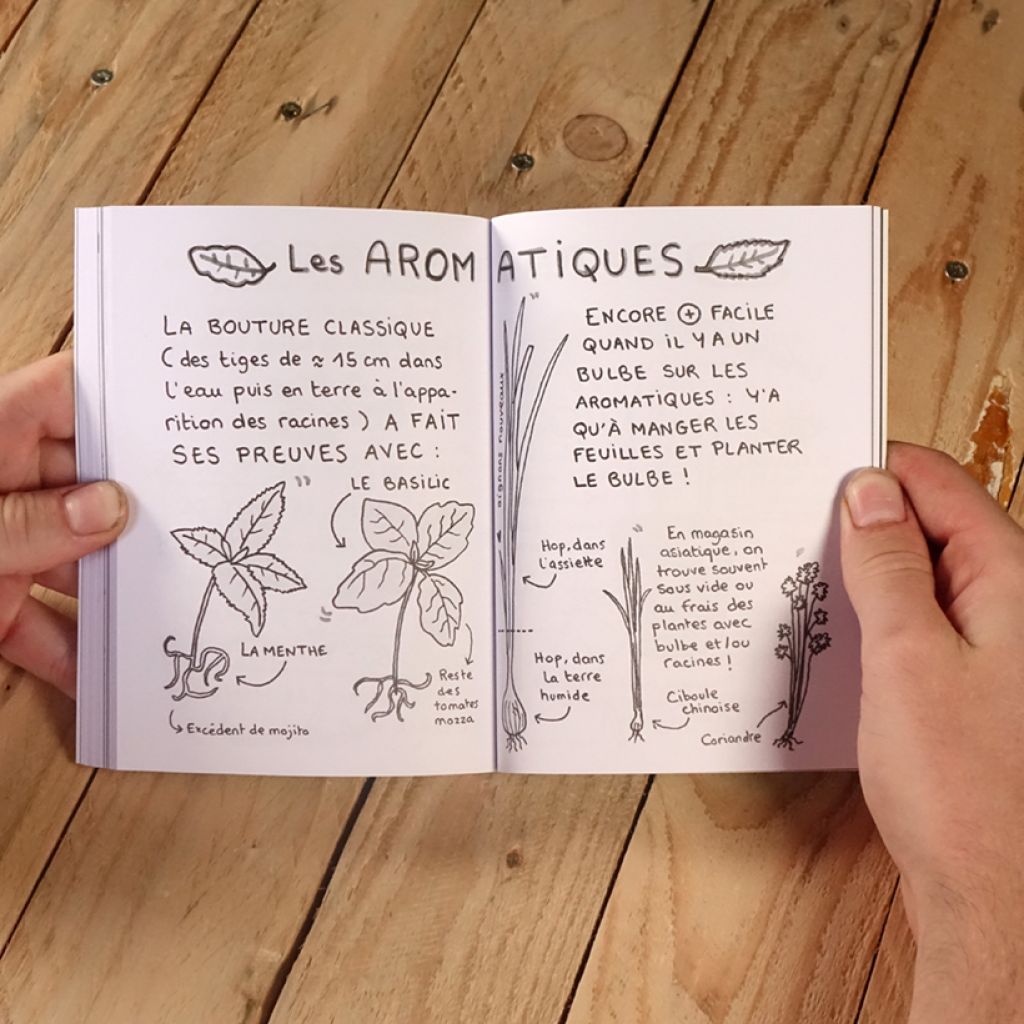 Les AROMATIQUES
LA BOUTURE CLASSIQUE
( des tiges de ≈ 15 cm dans
l'eau puis en terre à l'appa-
rition des racines ) A FAIT
SES PREUVES AVEC :
LE BASILIC
LA MENTHE
Excédent de mojito
Reste
des
tomates
mozza
oignons nouveaux
ENCORE + FACILE
QUAND iL Y A UN
BULBE SUR LES
AROMATIQUES : Y'A
QU'À MANGER LES
FEUILLES ET PLANTER
LE BULBE !
Hop, dans
l'assiette
Hop, dans
la terre
humide
En magasin
asiatique, on
trouve souvent
sous vide ou
au frais des
plantes avec
bulbe et/ou
racines !
Ciboule
chinoise
Coriandre